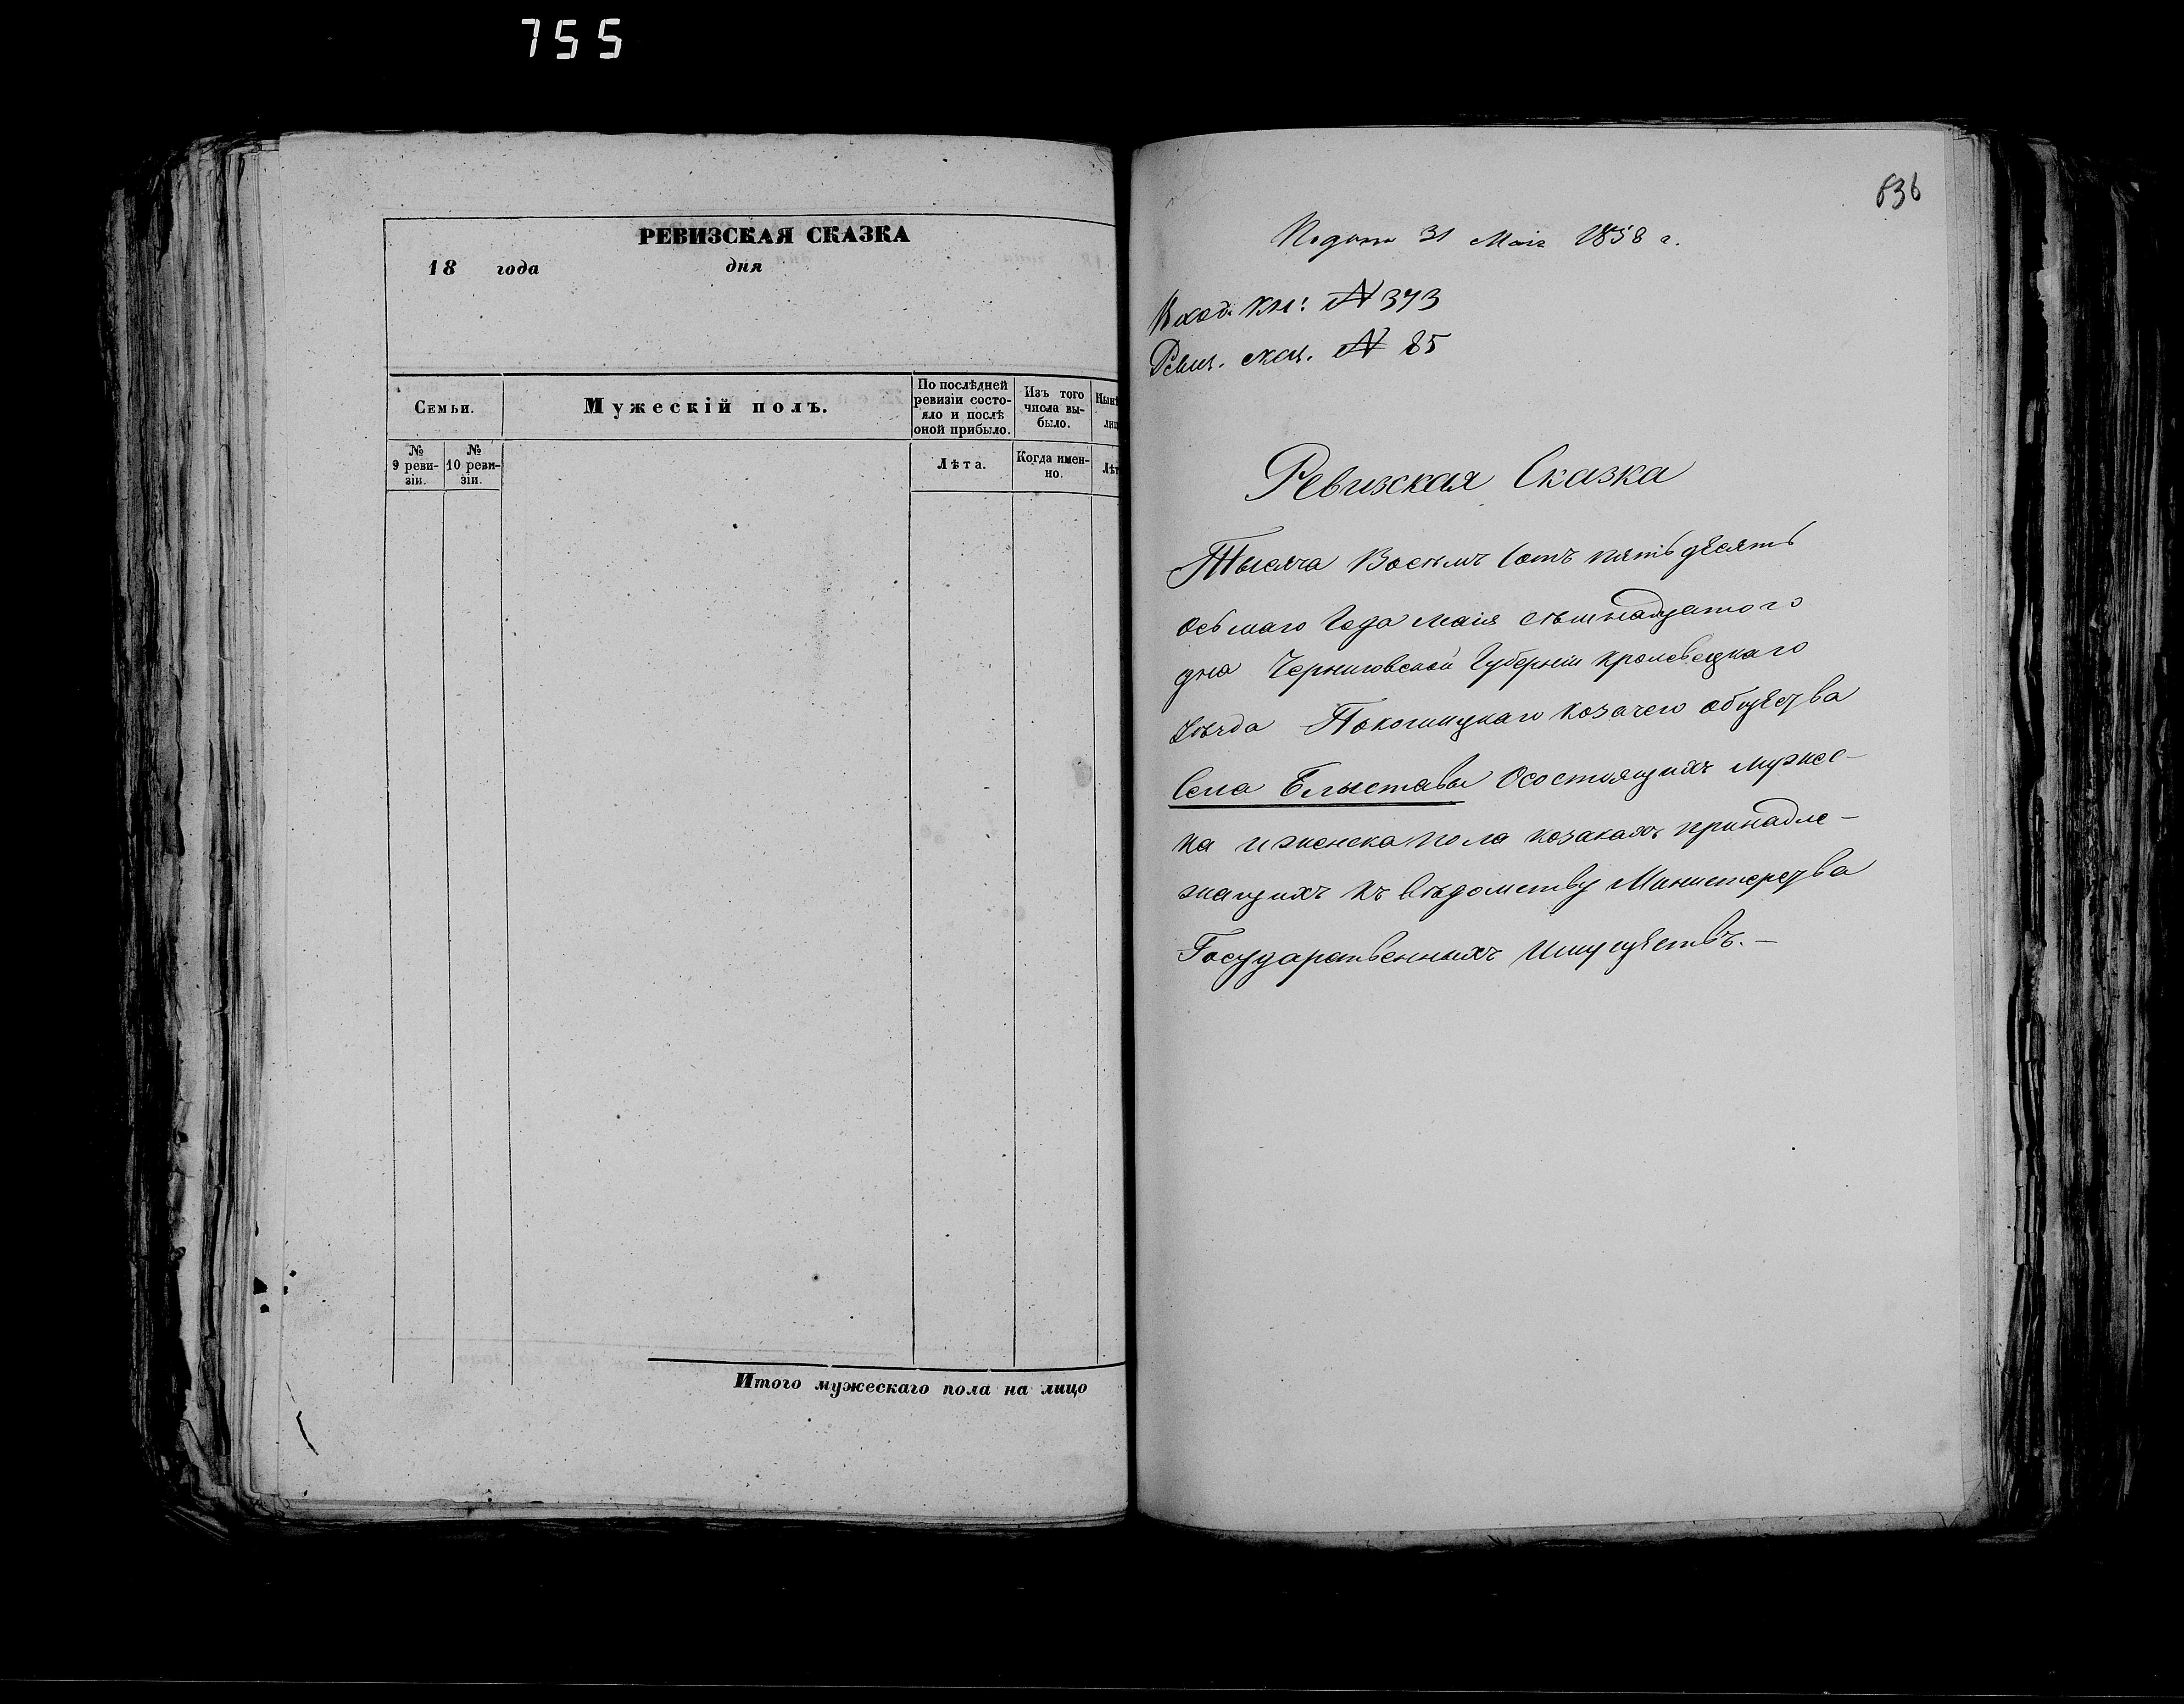 755
РЕВИЗСКАЯ СКАЗКА
18 года дня
Семьи.
Мужескій полъ.
По послѣдней ревизіи состо-
яло и послѣ
оной прибыло.
Изъ того
числа вы-
было.
№
9 реви-
зіи.
№
10 реви-
зіи.
Лѣта.
Когда имен-
но.
Итого мужескаго пола на лицо
636
Подана 31 Мая 1858 г.
Вход. кн: № 373
Ревиз. сказ. № 85
Ревизская Сказка
Тысяча Восемъ сотъ пятьдесятъ
осьмаго Года маія семнадцатого
дня Черниговской Губерніи Кролевецкаго
уѣзда Покошицкаго козачего общества
Села Блыстовы Осостоящихъ мужес-
ка и женска пола козакахъ принадле-
жащихъ къ вѣдомству Министерства
Государственныхъ Имуществъ.—